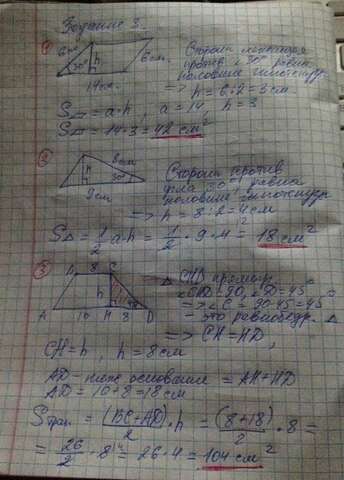 Задание 3.
①
6см
30°
h
6см.
14см.
Сторона лежащая
против ∠30° равна
половине гипотенузы
=> h = 6:2 = 3 см
S▱ = a·h, a = 14, h = 3
S▱ = 14·3 = 42 см²
②
8см
h
30°
9см
Сторона против
угла 30° равна
половине гипотенузы
=> h = 8:2 = 4 см
S△ = 1/2 a·h = 1/2 · 9 · 4 = 18 см²
③
B 8 C
h
A 10 H 8 D
△ CHD прямоуг.
∠D = 45°
=> ∠C = 90-45 = 45°
- это равнобедр. △
=> CH = HD,
CH = h, h = 8 см
AD - ниже основание = AH + HD
AD = 10 + 8 = 18 см
Sтрап. = (BC+AD)/2 · h = (8+18)/2 · 8 =
= 26/2 · 8 = 26·4 = 104 см²